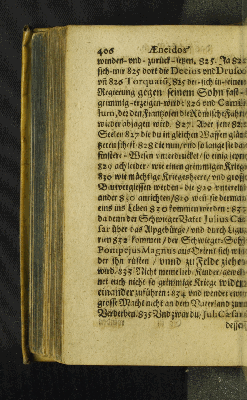 400 Æneidos
wenden- und- zurück-setzen, 825. Ja 826
sich-mir 825 dort die Decios und Drusos
und 826 Torquatū, 825 der-sich-in-seinem
Regierung gegen seinem Sohn fast-
grimmig-erzeigen-wird: 826 und Camil-
lum, der den Frantzosen die Römische Fahn
wieder abjagen wird. 827. Aber jene 832
Seelen 827 die du in gleichen Waffen
sehest 828 die nun, und so lange sie da
finstere-Wesen unterdrücket/ so einig
829 ach leider/ wie einen grimmigen Krieg
830 wie mächtige Kriegsheere/ und grosse
Blutvergiessen werden- die 829 untereinander
ander 830 anrichten/ 829 wen sie dermal
eins ins Leben 830 kommen werden: 831
da denn der Schwieger Vater Julius Cæ-
sar über das Alpgebürg/ und durch Ligu-
rien 832 kommen/ der Schwieger-Sohn
Pompejus Magnus aus Orient sich wie-
der ihn rüsten/ unnd zu Felde ziehen
wird/ 833 Nicht meine lieb. Kinder/ gewehnet
net euch nicht so grimmige Kriege wider
einander zuführen: 834 und wendet
grosse Macht nicht an dem Vaterland zum
Verderben. 835 Und zwar du, Jul. Cæsar
dessen